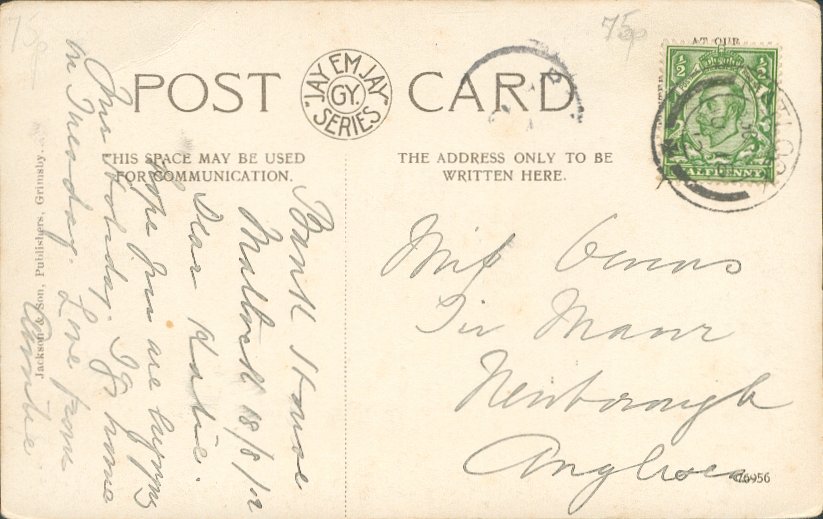 75p
75p
AT OUR
POST CARD
"JAY EM JAY"
GY.
SERIES
THIS SPACE MAY BE USED
FOR COMMUNICATION.
THE ADDRESS ONLY TO BE
WRITTEN HERE.
½ ½
HALFPENNY
Bank House
Matlock 18/8/12
Dear Katie.
Hope you are enjoying
your holiday. I go home
on Tuesday. Love from
Miss Owens
Tir Mawr
Newborough
Anglesea
76956
Jackson & Son, Publishers, Grimsby.